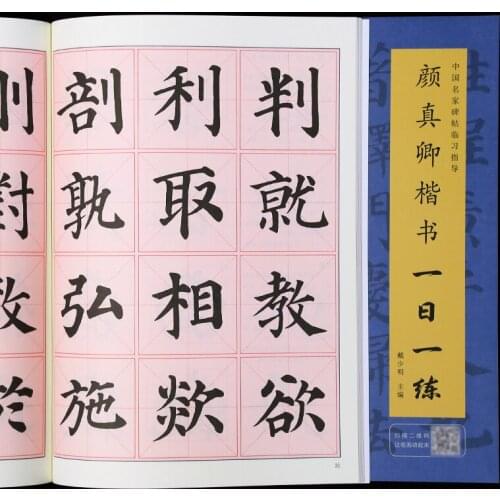 中国名家碑帖临习指导
颜真卿楷书一日一练
戴少明 主编
扫描二维码
判就教欲
利取相欻
剖孰弘施
對